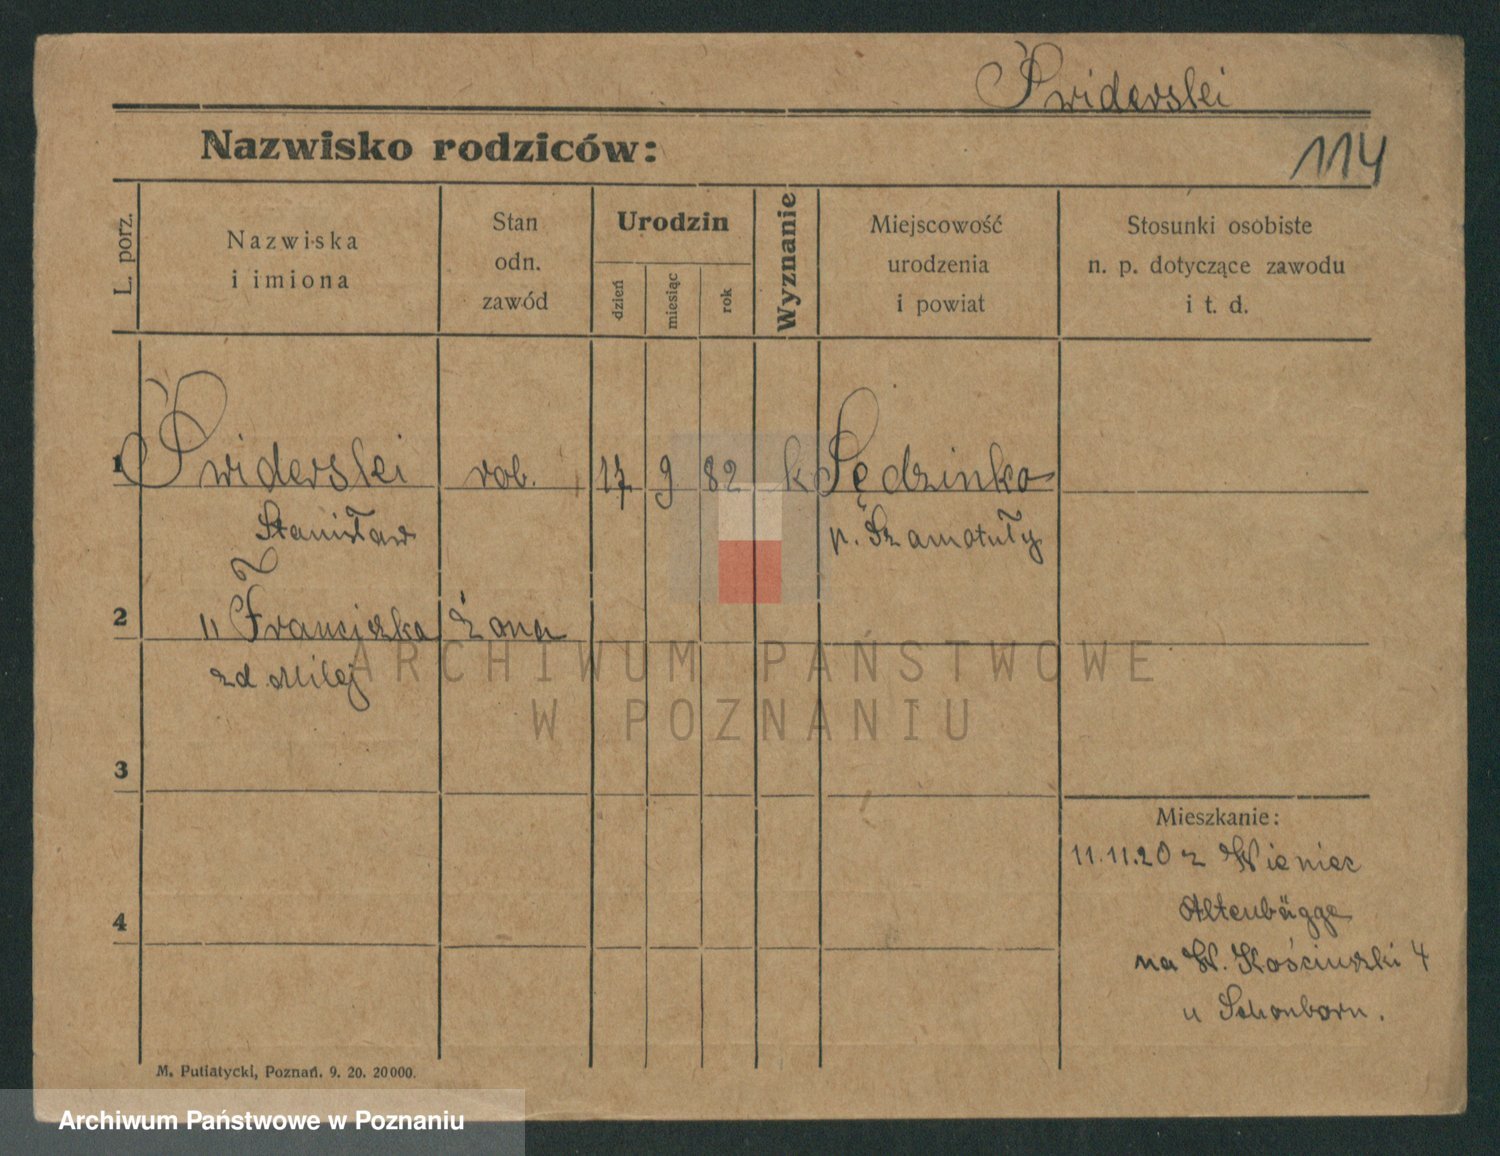 Świderski
Nazwisko rodziców:
114
L. porz.
Nazwiska
i imiona
Stan
odn.
zawód
Urodzin
dzień
miesiąc
rok
Wyznanie
Miejscowość
urodzenia
i powiat
Stosunki osobiste
n. p. dotyczące zawodu
i t. d.
1 Świderski rob. 17 9 82 k Sędzinko
Stanisław p. Szamotuły
2 " Franciszka żona
zd Milej
ARCHIWUM PAŃSTWOWE
W POZNANIU
3
Mieszkanie:
11.11.20 z Wieniec
4
na W. Kościuszki 4
u Schonborn.
M. Putiatycki, Poznań. 9. 20. 20000.
Archiwum Państwowe w Poznaniu